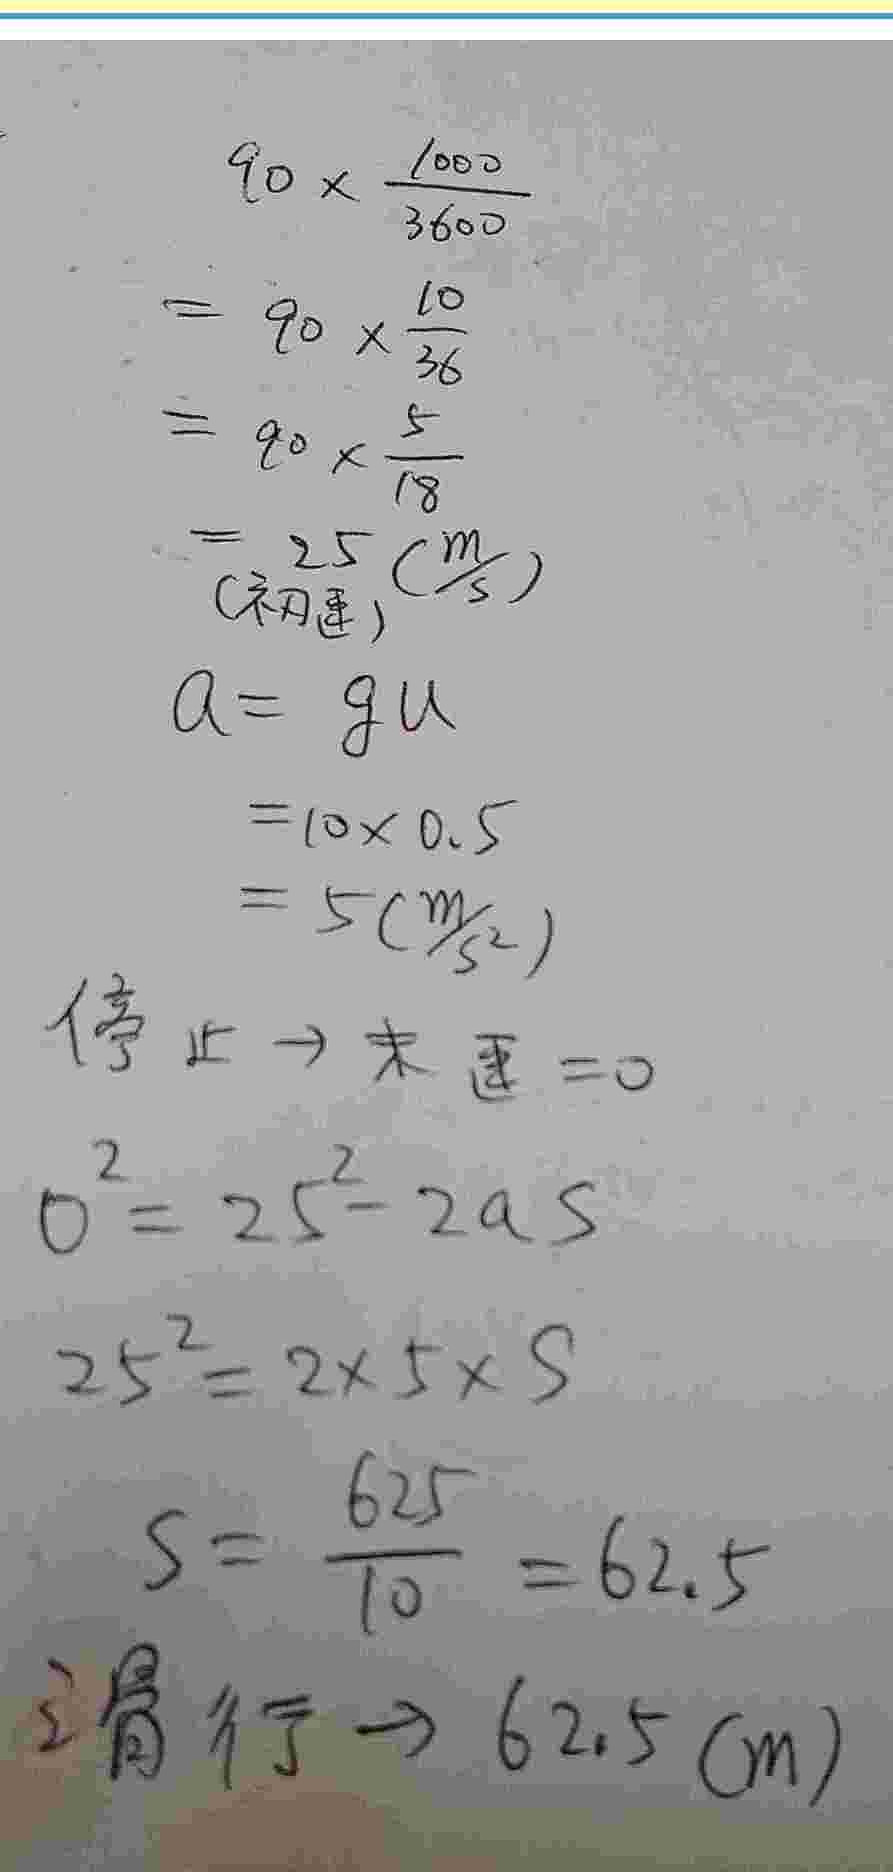 90 × 1000/3600
= 90 × 10/36
= 90 × 5/18
= 25 (m/s)
(初速)
a = gu
= 10 × 0.5
= 5 (m/s²)
停止 → 末速 = 0
0² = 25² - 2as
25² = 2 × 5 × S
S = 625/10 = 62.5
滑行 → 62.5 (m)